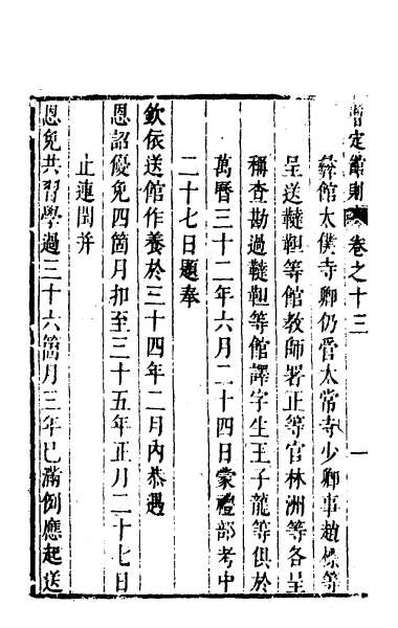 增定館則 卷之十三 一
彝館太僕寺卿仍管太常寺少卿事趙標等
呈送韃靼等館教師署正等官林洲等各呈
稱查勘過韃靼等館譯字生王子龍等俱於
萬曆三十二年六月二十四日蒙禮部考中
二十七日題奉
欽依送館作養於三十四年二月內恭遇
恩詔優免四箇月扣至三十五年正月二十七日
止連閏并
恩免共習學過三十六箇月三年已滿例應起送